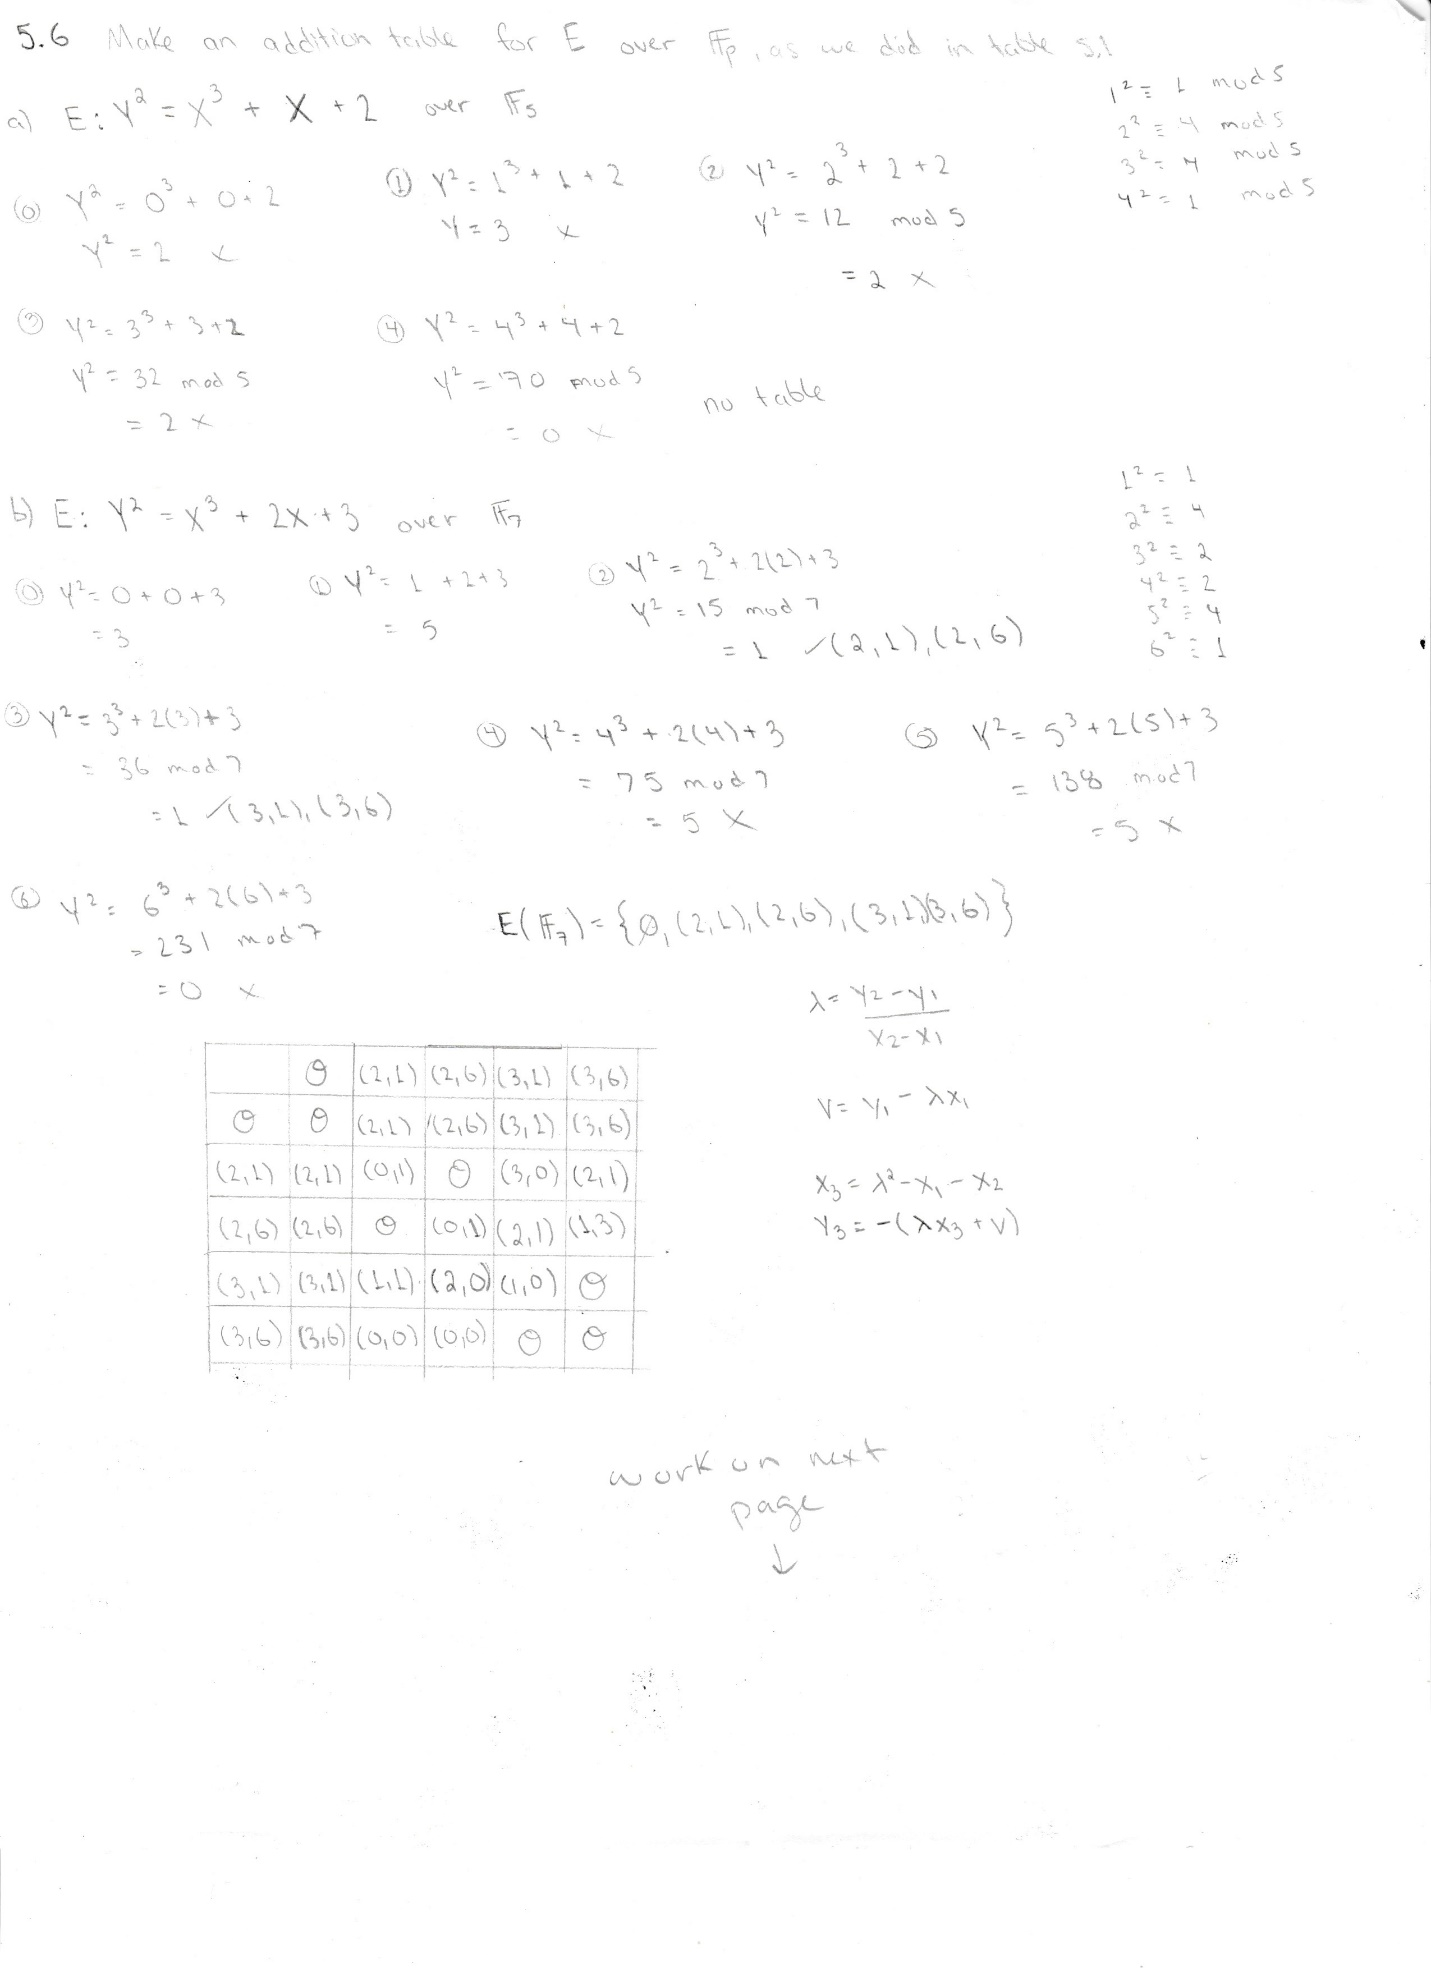 5.6 Make an addition table for E over 𝔽p, as we did in table 5.1
a) E: Y² = X³ + X + 2 over 𝔽5
1² ≡ 1 mod 5
2² ≡ 4 mod 5
3² = 4 mod 5
4² = 1 mod 5
⓪ Y² = 0³ + 0 + 2
Y² = 2 x
① Y² = 1³ + 1 + 2
Y = 3 x
② Y² = 2³ + 2 + 2
Y² = 12 mod 5
= 2 x
③ Y² = 3³ + 3 + 2
Y² = 32 mod 5
= 2 x
④ Y² = 4³ + 4 + 2
Y² = 70 mod 5
= 0 x
no table
b) E: Y² = X³ + 2X + 3 over 𝔽7
1² = 1
2² ≡ 4
3² ≡ 2
4² ≡ 2
5² ≡ 4
6² ≡ 1
⓪ Y² = 0 + 0 + 3
= 3
① Y² = 1 + 2 + 3
= 5
② Y² = 2³ + 2(2) + 3
Y² = 15 mod 7
= 1 ✓(2,1),(2,6)
③ Y² = 3³ + 2(3) + 3
= 36 mod 7
= 1 ✓(3,1),(3,6)
④ Y² = 4³ + 2(4) + 3
= 75 mod 7
= 5 x
⑤ Y² = 5³ + 2(5) + 3
= 138 mod 7
= 5 x
⑥ Y² = 6³ + 2(6) + 3
= 231 mod 7
= 0 x
E(𝔽7) = {O, (2,1), (2,6), (3,1)(3,6)}
λ = Y2 - Y1
X2 - X1
V = Y1 - λX1
X3 = λ² - X1 - X2
Y3 = -(λX3 + V)
O (2,1) (2,6) (3,1) (3,6)
O O (2,1) (2,6) (3,1) (3,6)
(2,1) (2,1) (0,1) O (3,0) (2,1)
(2,6) (2,6) O (0,1) (2,1) (1,3)
(3,1) (3,1) (1,1) (2,0) (1,0) O
(3,6) (3,6) (0,0) (0,0) O O
work on next
page
↓